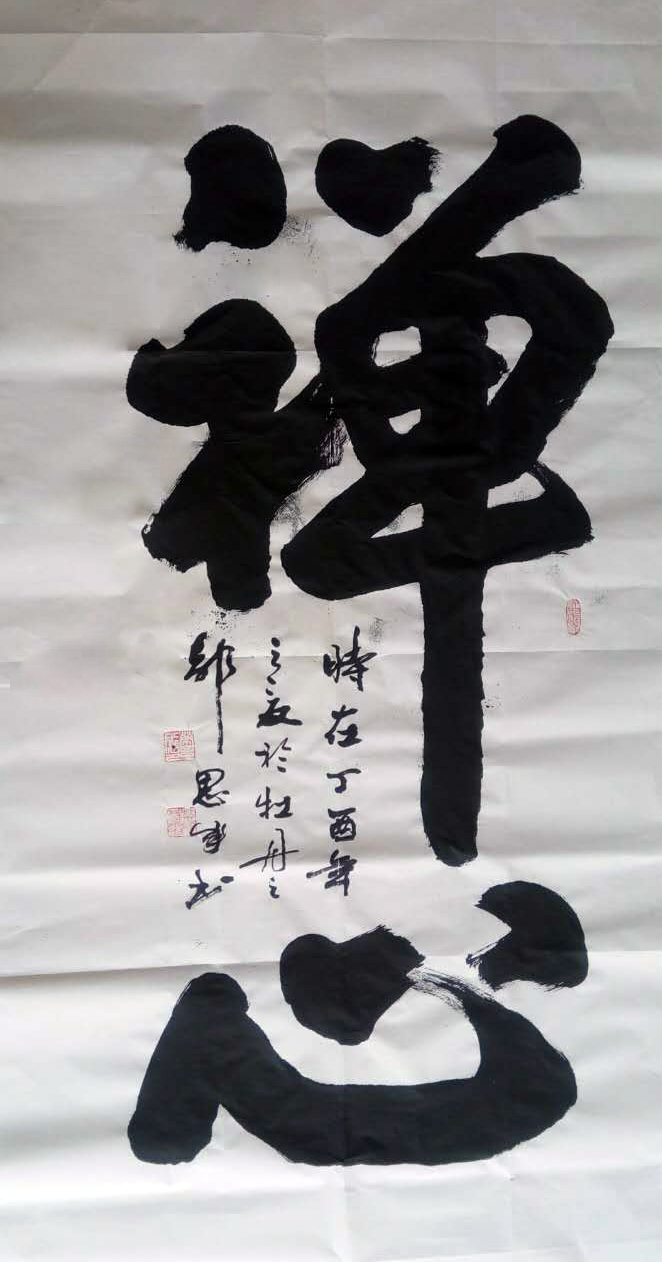 禅心
時在丁酉年
之夏於牡丹之
思书